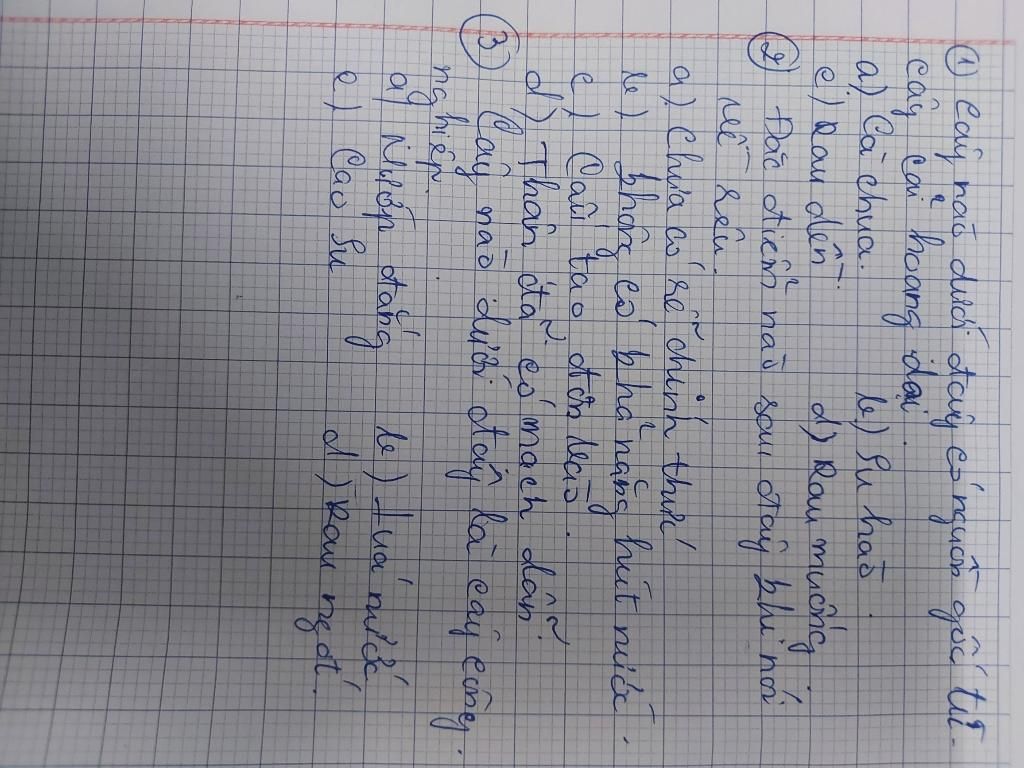 ① Cây nào dưới đây có nguồn gốc từ
cây cải hoang dại.
a) Cà chua. b) Su hào.
c) Rau dền. d) Rau muống.
② Đặc điểm nào sau đây khi nói
về rêu.
a) Chưa có rễ chính thức
b) không có khả năng hút nước.
c) Cấu tạo đơn bào.
d) Thân đã có mạch dẫn.
③ Cây nào dưới đây là cây công.
nghiệp
a) Mướp đắng b) Hoá nước
c) Cao su d) Rau ngót.